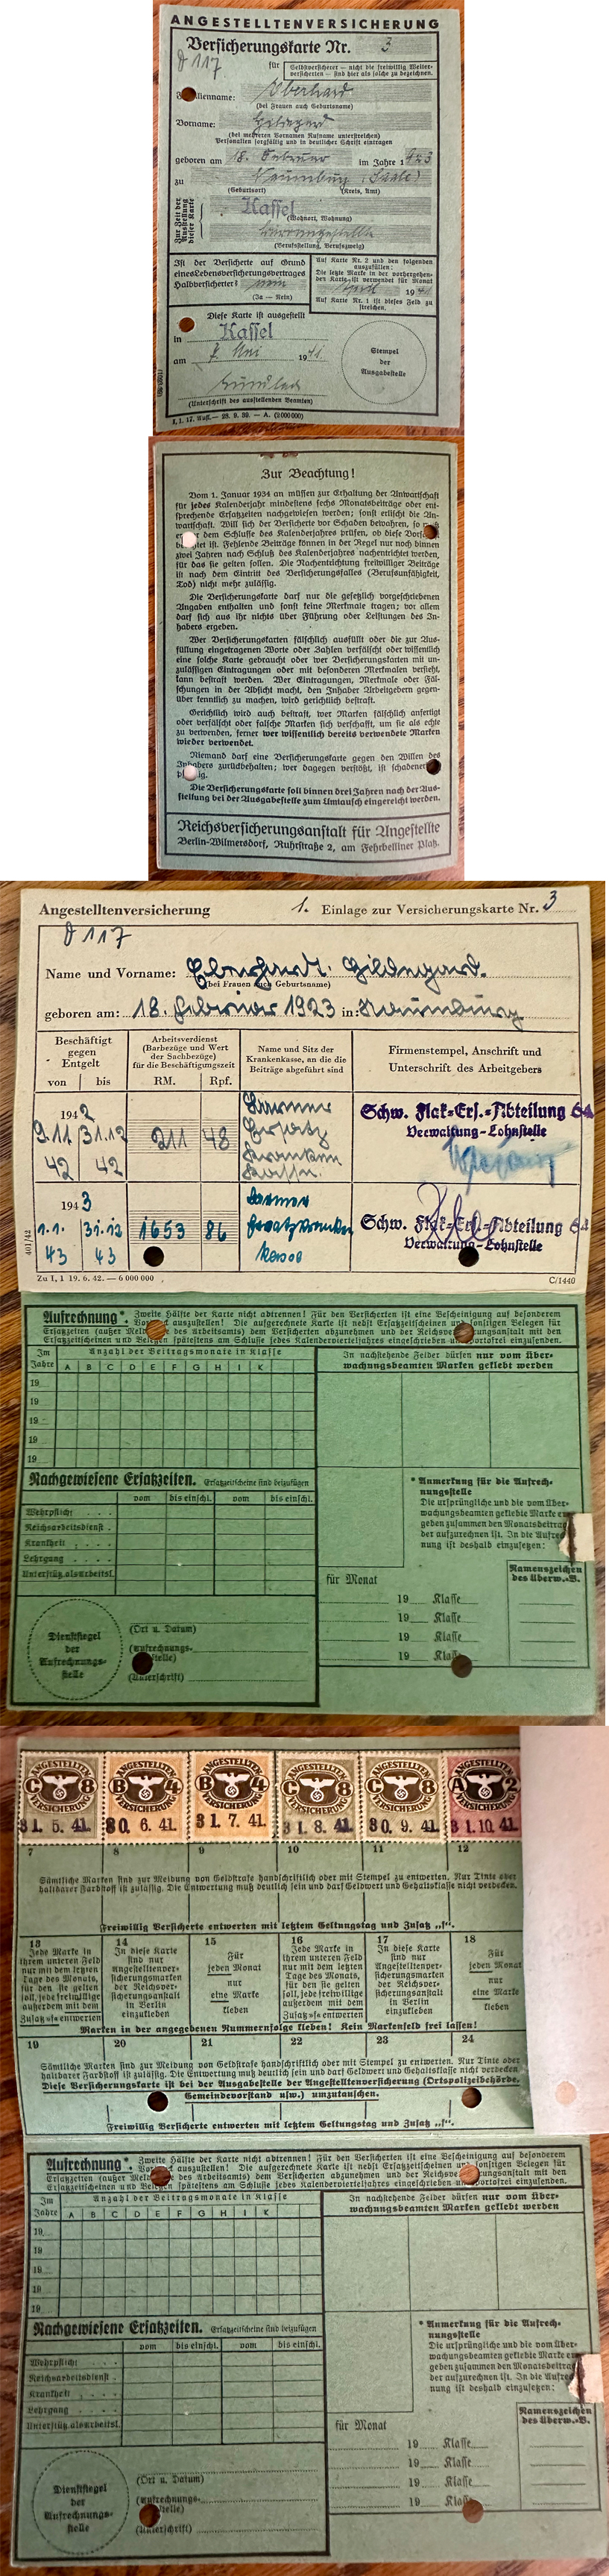 ANGESTELLTENVERSICHERUNG
Versicherungskarte Nr. 3
D 117
für
Selbstversicherer — nicht die freiwillig Weiter-
versicherten — sind hier als solche zu bezeichnen.
Familienname: Eberhard
(bei Frauen auch Geburtsname)
Vorname: Hildegard
(bei mehreren Vornamen Rufname unterstreichen)
Personalien sorgfältig und in deutlicher Schrift eintragen
geboren am 18. Februar im Jahre 1923
zu Naumburg (Saale)
(Geburtsort) (Kreis, Amt)
Zur Zeit der Ausstellung dieser Karte
Kassel
(Wohnort, Wohnung)
(Berufsstellung, Berufszweig)
Ist der Versicherte auf Grund
eines Lebensversicherungsvertrages
Halbversicherter? nein
(Ja — Nein)
Auf Karte Nr. 2 und den folgenden
auszufüllen:
Die letzte Marke in der vorhergehen-
den Karte ist verwendet für Monat
April 1941
Auf Karte Nr. 1 ist dieses Feld zu
streichen.
Diese Karte ist ausgestellt
in Kassel
am 7. Mai 1941.
(Unterschrift des ausstellenden Beamten)
Stempel
der
Ausgabestelle
I, 1. 17. Aufl. — 28. 9. 39. — A. (2 000 000)
Zur Beachtung!
Vom 1. Januar 1934 an müssen zur Erhaltung der Anwartschaft
für jedes Kalenderjahr mindestens sechs Monatsbeiträge oder ent-
sprechende Ersatzzeiten nachgewiesen werden; sonst erlischt die An-
wartschaft. Will sich der Versicherte vor Schaden bewahren, so muß
er vor dem Schlusse des Kalenderjahres prüfen, ob diese Vorschrift
beachtet ist. Fehlende Beiträge können in der Regel nur noch binnen
zwei Jahren nach Schluß des Kalenderjahres nachentrichtet werden,
für das sie gelten sollen. Die Nachentrichtung freiwilliger Beiträge
ist nach dem Eintritt des Versicherungsfalles (Berufsunfähigkeit,
Tod) nicht mehr zulässig.
Die Versicherungskarte darf nur die gesetzlich vorgeschriebenen
Angaben enthalten und sonst keine Merkmale tragen; vor allem
darf sich aus ihr nichts über Führung oder Leistungen des In-
habers ergeben.
Wer Versicherungskarten fälschlich ausfüllt oder die zur Aus-
füllung eingetragenen Worte oder Zahlen verfälscht oder wissentlich
eine solche Karte gebraucht oder wer Versicherungskarten mit un-
zulässigen Eintragungen oder mit besonderen Merkmalen versieht,
kann bestraft werden. Wer Eintragungen, Merkmale oder Fäl-
schungen in der Absicht macht, den Inhaber Arbeitgebern gegen-
über kenntlich zu machen, wird gerichtlich bestraft.
Gerichtlich wird auch bestraft, wer Marken fälschlich anfertigt
oder verfälscht oder falsche Marken sich verschafft, um sie als echte
zu verwenden, ferner wer wissentlich bereits verwendete Marken
wieder verwendet.
Niemand darf eine Versicherungskarte gegen den Willen des
Inhabers zurückbehalten; wer dagegen verstößt, ist schadenersatz-
pflichtig.
Die Versicherungskarte soll binnen drei Jahren nach der Aus-
stellung bei der Ausgabestelle zum Umtausch eingereicht werden.
Reichsversicherungsanstalt für Angestellte
Berlin-Wilmersdorf, Ruhrstraße 2, am Fehrbelliner Platz.
Angestelltenversicherung 1. Einlage zur Versicherungskarte Nr. 3
D 117
Name und Vorname: Eberhardt. Hildegard.
(bei Frauen auch Geburtsname)
geboren am: 18. Februar 1923 in: Naumburg
Beschäftigt gegen Entgelt
von bis
Arbeitsverdienst
(Barbezüge und Wert
der Sachbezüge)
für die Beschäftigungszeit
RM. Rpf.
Name und Sitz der
Krankenkasse, an die die
Beiträge abgeführt sind
Firmenstempel, Anschrift und
Unterschrift des Arbeitgebers
1942
9.11. 42 31.12 42 211 48
Barmer Ersatz Kranken
Schw. Flak-Ers.-Abteilung 64
Verwaltung-Lohnstelle
1943
1.1. 43 31.12 43 1653 86
Barmer Ersatzkranken Kasse
Schw. Flak-Ers.-Abteilung 64
Verwaltung-Lohnstelle
401/42
Zu I, 1 19. 6. 42. — 6 000 000 C/1440
Aufrechnung*. Zweite Hälfte der Karte nicht abtrennen! Für den Versicherten ist eine Bescheinigung auf besonderem
Vordruck auszustellen! Die aufgerechnete Karte ist nebst Ersatzzeitscheinen und sonstigen Belegen für
Ersatzzeiten (außer Meldekarten des Arbeitsamts) dem Versicherten abzunehmen und der Reichsversicherungsanstalt mit den
Ersatzzeitscheinen und Belegen spätestens am Schlusse jedes Kalendervierteljahres eingeschrieben und portofrei einzusenden.
Im Jahre
Anzahl der Beitragsmonate in Klasse
A B C D E F G H I K
19
19
19
19
19
In nachstehende Felder dürfen nur vom Über-
wachungsbeamten Marken geklebt werden
Nachgewiesene Ersatzzeiten. Ersatzzeitscheine sind beizufügen
vom bis einschl. vom bis einschl.
Wehrpflicht
Reichsarbeitsdienst
Krankheit
Lehrgang
Unterstütz. als Arbeitsl.
* Anmerkung für die Aufrech-
nungsstelle
Die ursprüngliche und die vom Über-
wachungsbeamten geklebte Marke er-
geben zusammen den Monatsbeitrag,
der aufzurechnen ist. In die Aufrech-
nung ist deshalb einzusetzen:
für Monat
Namenszeichen
des Überw.-B.
19 Klasse
19 Klasse
19 Klasse
19 Klasse
Dienstsiegel
der
Aufrechnungs-
stelle
(Ort u. Datum)
(Aufrechnungs-
stelle)
(Unterschrift)
ANGESTELLTEN C 8 VERSICHERUNG 31. 5. 41.
ANGESTELLTEN B 4 VERSICHERUNG 30. 6. 41.
ANGESTELLTEN B 4 VERSICHERUNG 31. 7. 41.
ANGESTELLTEN C 8 VERSICHERUNG 31. 8. 41.
ANGESTELLTEN C 8 VERSICHERUNG 30. 9. 41.
ANGESTELLTEN A 2 VERSICHERUNG 31. 10. 41
7 8 9 10 11 12
Sämtliche Marken sind zur Meidung von Geldstrafe handschriftlich oder mit Stempel zu entwerten. Nur Tinte oder
haltbarer Farbstoff ist zulässig. Die Entwertung muß deutlich sein und darf Geldwert und Gehaltsklasse nicht verdecken.
Freiwillig Versicherte entwerten mit letztem Geltungstag und Zusatz „f“.
13 14 15 16 17 18
Jede Marke in
ihrem unteren Feld
nur mit dem letzten
Tage des Monats,
für den sie gelten
soll, jede freiwillige
außerdem mit dem
Zusatz »f« entwerten
In diese Karte
sind nur
Angestelltenver-
sicherungsmarken
der Reichsver-
sicherungsanstalt
in Berlin
einzukleben
Für
jeden Monat
nur
eine Marke
kleben
Jede Marke in
ihrem unteren Feld
nur mit dem letzten
Tage des Monats,
für den sie gelten
soll, jede freiwillige
außerdem mit dem
Zusatz »f« entwerten
In diese Karte
sind nur
Angestelltenver-
sicherungsmarken
der Reichsver-
sicherungsanstalt
in Berlin
einzukleben
Für
jeden Monat
nur
eine Marke
kleben
Marken in der angegebenen Nummernfolge kleben! Kein Markenfeld frei lassen!
19 20 21 22 23 24
Sämtliche Marken sind zur Meidung von Geldstrafe handschriftlich oder mit Stempel zu entwerten. Nur Tinte oder
haltbarer Farbstoff ist zulässig. Die Entwertung muß deutlich sein und darf Geldwert und Gehaltsklasse nicht verdecken.
Diese Versicherungskarte ist bei der Ausgabestelle der Angestelltenversicherung (Ortspolizeibehörde,
Gemeindevorstand usw.) umzutauschen.
Freiwillig Versicherte entwerten mit letztem Geltungstag und Zusatz „f“.
Aufrechnung*. Zweite Hälfte der Karte nicht abtrennen! Für den Versicherten ist eine Bescheinigung auf besonderem
Vordruck auszustellen! Die aufgerechnete Karte ist nebst Ersatzzeitscheinen und sonstigen Belegen für
Ersatzzeiten (außer Meldekarten des Arbeitsamts) dem Versicherten abzunehmen und der Reichsversicherungsanstalt mit den
Ersatzzeitscheinen und Belegen spätestens am Schlusse jedes Kalendervierteljahres eingeschrieben und portofrei einzusenden.
Im Jahre
Anzahl der Beitragsmonate in Klasse
A B C D E F G H I K
19
19
19
19
19
In nachstehende Felder dürfen nur vom Über-
wachungsbeamten Marken geklebt werden
Nachgewiesene Ersatzzeiten. Ersatzzeitscheine sind beizufügen
vom bis einschl. vom bis einschl.
Wehrpflicht
Reichsarbeitsdienst
Krankheit
Lehrgang
Unterstütz. als Arbeitsl.
* Anmerkung für die Aufrech-
nungsstelle
Die ursprüngliche und die vom Über-
wachungsbeamten geklebte Marke er-
geben zusammen den Monatsbeitrag,
der aufzurechnen ist. In die Aufrech-
nung ist deshalb einzusetzen:
für Monat
Namenszeichen
des Überw.-B.
19 Klasse
19 Klasse
19 Klasse
19 Klasse
Dienstsiegel
der
Aufrechnungs-
stelle
(Ort u. Datum)
(Aufrechnungs-
stelle)
(Unterschrift)